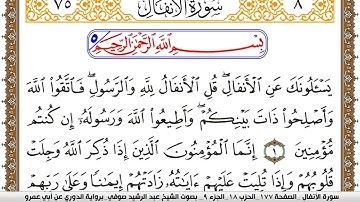 ٧٥ سُورَةُ الأَنفَالِ ٨
بِسْمِ اللَّهِ الرَّحْمَٰنِ الرَّحِيمِ
يَسْـَٔلُونَكَ عَنِ الْأَنفَالِ ۖ قُلِ الْأَنفَالُ لِلَّهِ وَالرَّسُولِ ۖ فَاتَّقُوا اللَّهَ
وَأَصْلِحُوا ذَاتَ بَيْنِكُمْ ۖ وَأَطِيعُوا اللَّهَ وَرَسُولَهُۥ إِن كُنتُم
مُّومِنِينَ ۝١ إِنَّمَا الْمُومِنُونَ الَّذِينَ إِذَا ذُكِرَ اللَّهُ وَجِلَتْ
قُلُوبُهُمْ وَإِذَا تُلِيَتْ عَلَيْهِمْ ءَايَٰتُهُۥ زَادَتْهُمْ إِيمَٰنًا وَعَلَىٰ رَبِّهِمْ
سورة الأنفال_ الصفحة ١٧٧ _الحزب ١٨_ الجزء ٩_ بصوت الشيخ عبد الرشيد صوفي_ برواية الدوري عن أبي عمرو